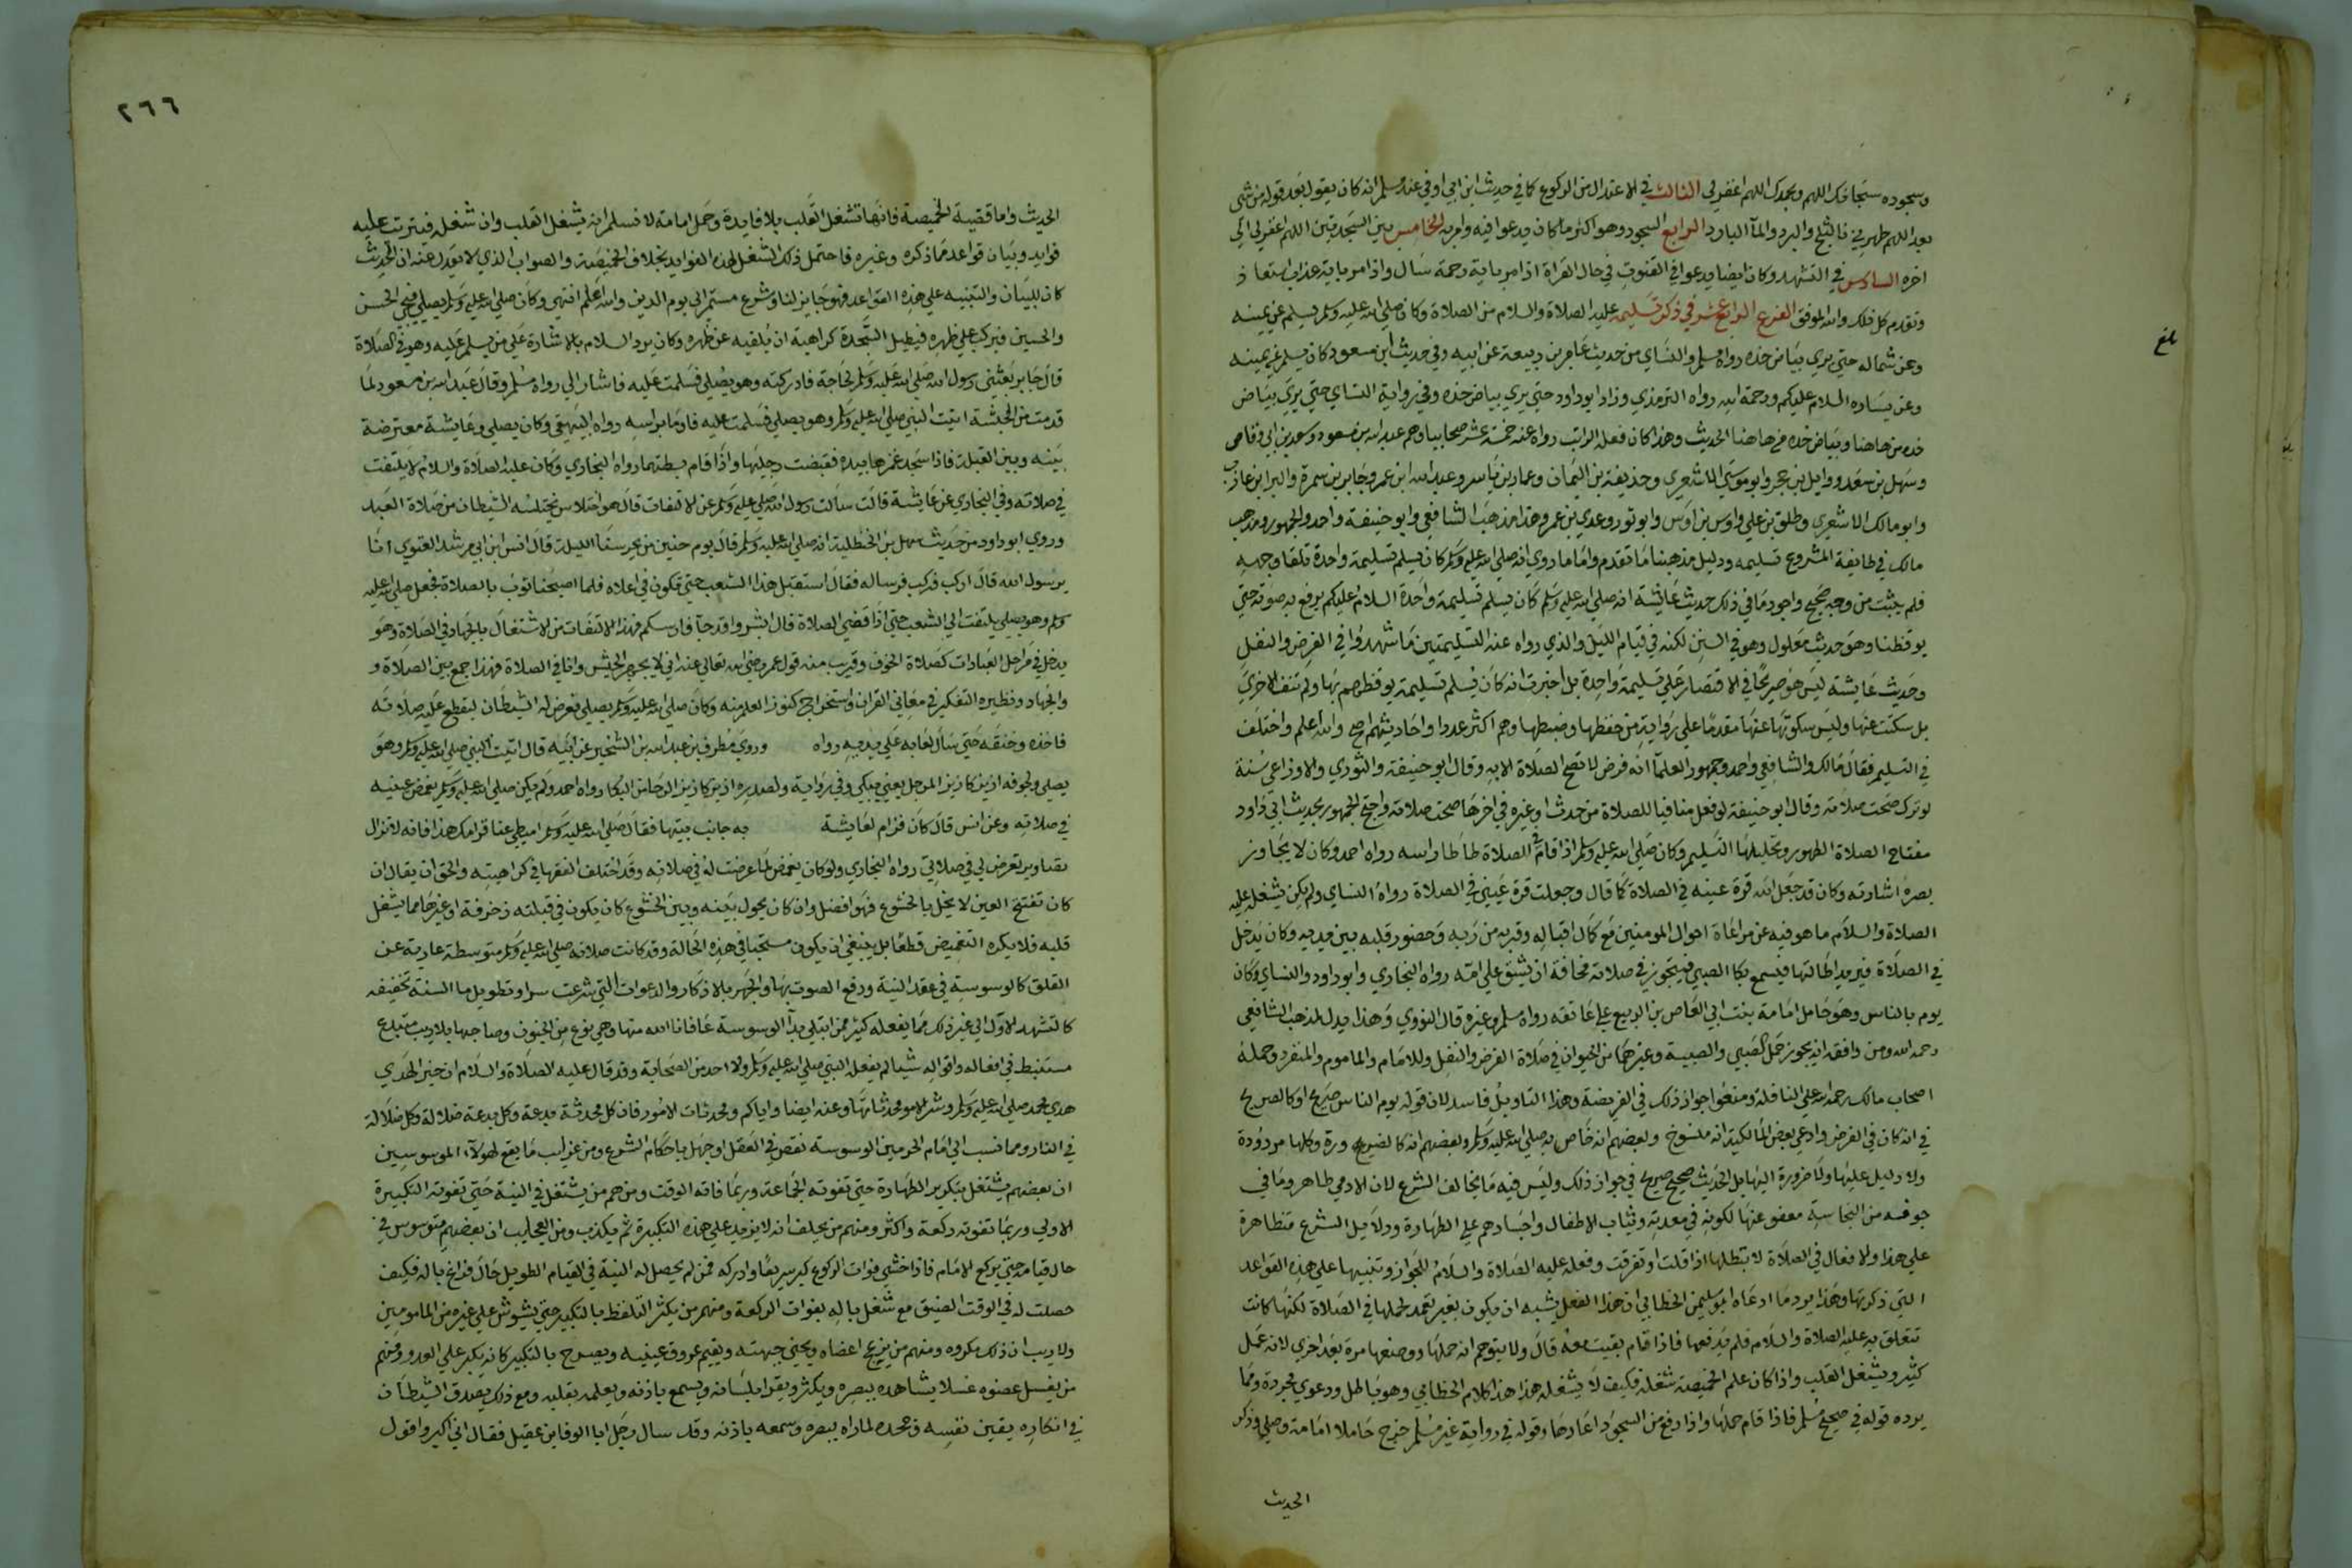 وسجوده سبحانك اللهم وبحمدك اللهم اغفرلي الثالث في الاعتدال من الركوع كما في حديث ابن ابي اوفي عند مسلم انه كان يقول بعد قوله من شي
بعد اللهم طهرني بالثلج والبرد والمآ البارد الرابع السجود وهو اكثر ما كان يدعوا فيه وامر به الخامس بين السجدتين اللهم اغفرلي الي
اخره السادس في التشهد وكان ايضا يدعوا في القنوت في حال القراة اذا مر باية رحمة سال واذا مر باية عذاب استعاذ
وتقدم كل ذلك والله الموفق الفرع الرابع عشر في ذكر تسليمه عليه الصلاة والسلام من الصلاة وكان صلي الله عليه وسلم يسلم عن يمينه
وعن شماله حتي يري بياض خده رواه مسلم والنساي من حديث عامر بن ربيعة عن ابيه وفي حديث ابن مسعود كان يسلم عن يمينه
وعن يساره السلام عليكم ورحمة الله رواه الترمذي وزاد ابو داود حتي يري بياض خده وفي رواية النساي حتي يري بياض
خده من هاهنا وبياض خده من هاهنا الحديث وهذا كان فعله الراتب رواه عنه خمسة عشر صحابيا وهم عبد الله بن مسعود وسعد بن ابي وقاص
وسهل بن سعد ووايل بن حجر وابو موسي الاشعري وحذيفة بن اليمان وعمار بن ياسر وعبد الله ابن عمر وجابر بن سمرة والبرا بن عازب
وابو مالك الاشعري وطلق بن علي واوس بن اوس وابو ثور وعدي بن عمر وهذا مذهب الشافعي وابو حنيفة واحمد والجمهور ومذهب
مالك في طايفة المشروع تسليمه ودليل مذهبنا ما تقدم واما ما روي انه صلي الله عليه وسلم كان يسلم تسليمة واحدة تلقا وجهه
فلم يثبت من وجه صحيح واجود ما في ذلك حديث عايشة انه صلي الله عليه وسلم كان يسلم تسليمة واحدة السلام عليكم يرفع به صوته حتي
يوقظنا وهو حديث معلول وهو في السنن لكنه في قيام الليل والذي رواه عنه التسليمتين ما شهدوا في الفرض والنفل
وحديث عايشة ليس هو صريحا في الاقتصار علي تسليمة واحدة بل اخبرت انه كان يسلم تسليمة يوقظهم بها ولم تنف الاخري
بل سكتت عنها وليس سكوتها عنها مقدما علي رواية من حفظها وضبطها وهم اكثر عددا واحاديثهم اصح والله اعلم واختلف
في التسليم فقال مالك والشافعي واحمد وجمهور العلمآ انه فرض لا تصح الصلاة الا به وقال ابو حنيفة والثوري والاوزاعي سنة
لو ترك صحت صلاته وقال ابو حنيفة لو فعل منافيا للصلاة من حدث او غيره في اخرها صحت صلاته واحتج الجمهور بحديث ابي داود
مفتاح الصلاة الطهور وتحليلها التسليم وكان صلي الله عليه وسلم اذا قام في الصلاة طاطا راسه رواه احمد وكان لا يجاوز
بصره اشارته وكان قد جعل الله قرة عينه في الصلاة كما قال وجعلت قرة عيني في الصلاة رواه النساي ولم يكن يشغله عليه
الصلاة والسلام ما هو فيه عن مراعاة احوال المومنين مع كمال اقباله وقربه من ربه وحضور قلبه بين يديه وكان يدخل
في الصلاة فيريد اطالتها فيسمع بكا الصبي فيتجوز في صلاته مخافة ان يشق علي امه رواه البخاري وابو داود والنساي وكان
يوم بالناس وهو حامل امامة بنت ابي العاص بن الربيع علي عاتقه رواه مسلم وغيره قال النووي وهذا يدل لمذهب الشافعي
رحمه الله ومن وافقه انه يجوز حمل الصبي والصبية وغيرهما من الحيوان في صلاة الفرض والنفل وللامام والماموم والمنفرد وحمله
اصحاب مالك رحمه الله علي النافلة ومنعوا جواز ذلك في الفريضة وهذا التاويل فاسد لان قوله يوم الناس صريح او كالصريح
في انه كان في الفرض وادعي بعض المالكية انه منسوخ وبعضهم انه خاص به صلي الله عليه وسلم وبعضهم انه كان لضرورة وكلها مردودة
ولا دليل عليها ولا ضرورة اليها بل الحديث صحيح صريح في جواز ذلك وليس فيه ما يخالف الشرع لان الادمي طاهر وما في
جوفه من النجاسة معفو عنها لكونه في معدته وثياب الاطفال واجسادهم علي الطهارة ودلايل الشرع متظاهرة
علي هذا والافعال في الصلاة لا تبطلها اذا قلت او تفرقت وفعله عليه الصلاة والسلام للجواز وتنبيها علي هذه القواعد
التي ذكرتها وهذا يرد ما ادعاه ابو سليمن الخطابي ان هذا الفعل يشبه ان يكون بغير تعمد لحملها في الصلاة لكنها كانت
تتعلق به عليه الصلاة والسلام فلم يدفعها فاذا قام بقيت معه قال ولا يتوهم انه حملها ووضعها مرة بعد اخري لانه عمل
كثير ويشغل القلب واذا كان علم الخميصة شغله فكيف لا يشغله هذا هذا كلام الخطابي وهو باطل ودعوي مجردة ومما
يرده قوله في صحيح مسلم فاذا قام حملها واذا رفع من السجود اعادها وقوله في رواية غير مسلم خرج حاملا امامة وصلي وذكر
الحديث
بلغ
٢٦٦
الحديث واما قضية الخميصة فانها تشغل القلب بلا فايدة وحمل امامة لا نسلم انه يشغل القلب وان شغله فيترتب عليه
فوايد وبيان قواعد مما ذكره وغيره فاحتمل ذلك الشغل لهذه الفوايد بخلاف الخميصة والصواب الذي لا يعدل عنه ان الحديث
كان للبيان والتنبيه علي هذه القواعد فهو جايز لنا وشرع مستمر الي يوم الدين والله اعلم انتهي وكان صلي الله عليه وسلم يصلي فيجي الحسن
والحسين فيركب علي ظهره فيطيل السجدة كراهية ان يلقيه عن ظهره وكان يرد السلام بالاشارة علي من يسلم عليه وهو في الصلاة
قال جابر بعثني رسول الله صلي الله عليه وسلم لحاجة فادركته وهو يصلي فسلمت عليه فاشار الي رواه مسلم وقال عبد الله بن مسعود لما
قدمت من الحبشة اتيت النبي صلي الله عليه وسلم وهو يصلي فسلمت عليه فاوما براسه رواه البيهقي وكان يصلي وعايشة معترضة
بينه وبين القبلة فاذا سجد غمزها بيده فقبضت رجليها واذا قام بسطتهما رواه البخاري وكان عليه الصلاة والسلام لا يلتفت
في صلاته وفي البخاري عن عايشة قالت سالت رسول الله صلي عليه وسلم عن الالتفات قال هو اختلاس يختلسه الشيطان من صلاة العبد
وروي ابو داود من حديث سهل بن الحنظلية انه صلي الله عليه وسلم قال يوم حنين من يحرسنا الليلة قال انس ابن ابي مرشد الغنوي انا
يرسول الله قال اركب فركب فرساله فقال استقبل هذا الشعب حتي تكون في اعلاه فلما اصبحنا ثوب بالصلاة فجعل صلي الله عليه
وسلم وهو يصلي يلتفت الي الشعب حتي اذا قضي الصلاة قال ابشروا قد جآ فارسكم فهذا الالتفات من الاشتغال بالجهاد في الصلاة وهو
يدخل في مراحل العبادات كصلاة الخوف وقريب منه قول عمر رضي الله تعالي عنه اني لا يجهز الجيش وانا في الصلاة فهذا جمع بين الصلاة و
والجهاد ونظيره التفكير في معاني القران واستخراج كنوز العلم منه وكان صلي الله عليه وسلم يصلي فعرض له الشيطان ليقطع عليه صلاته
فاخذه وخنقه حتي سال لعابه علي يديه رواه وروي مطرف بن عبد الله بن الشخير عن ابيه قال اتيت النبي صلي الله عليه وسلم وهو
يصلي ولجوفه ازيز كازيز المرجل يعني يبكي وفي رواية ولصدره ازيز كازيز الرحا من البكا رواه احمد ولم يكن صلي الله عليه وسلم يغمض عينيه
في صلاته وعن انس قال كان قرام لعايشة به جانب بيتها فقال صلي الله عليه وسلم اميطي عنا قرامك هذا فانه لا تزال
تصاوير تعرض لي في صلاتي رواه البخاري ولو كان يغمض لما عرضت له في صلاته وقد اختلف الفقها في كراهيته والحق ان يقال ان
كان تفتح العين لا يخل بالخشوع فهو افضل وان كان يحول بينه وبين الخشوع كان يكون في قبلته زخرفة او غيرها مما يشغل
قلبه فلا يكره التغميض قطعا بل ينبغي ان يكون مستحبا في هذه الحالة وقد كانت صلاته صلي الله عليه وسلم متوسطة عارية عن
القلق كالوسوسة في عقد النية ورفع الصوت بها والجهر بالاذكار والدعوات التي شرعت سرا وتطويل ما السنة تخفيفه
كالتشهد الاول الي غير ذلك مما يفعله كثير ممن ابتلي بدآ الوسوسة عافانا الله منها وهي نوع من الجنون وصاحبها بلا ريب مبتدع
مستنبط في افعاله واقواله شيا لم يفعله النبي صلي الله عليه وسلم ولا احد من الصحابة وقد قال عليه الصلاة والسلام ان خير الهدي
هدي محمد صلي الله عليه وسلم وشر الامور محدثاتها وعنه ايضا واياكم ومحدثات الامور فان كل محدثة بدعة وكل بدعة ضلالة وكل ضلالة
في النار ومما نسب الي امام الحرمين الوسوسة نقص في العقل او جهل باحكام الشرع ومن غرايب ما يقع لهولآء الموسوسين
ان بعضهم يشتغل بتكرير الطهارة حتي تفوته الجماعة وربما فاته الوقت ومنهم من يشتغل في النية حتي تفوته التكبيرة
الاولي وربما تفوته ركعة واكثر ومنهم من يحلف انه لا يزيد علي هذه التكبيرة ثم يكذب ومن العجايب ان بعضهم يتوسوس في
حال قيامه حتي يركع الامام فاذا خشي فوات الركوع كبر سريعا وادركه فمن لم يحصل له النية في القيام الطويل حال فراغ باله فكيف
حصلت له في الوقت الضيق مع شغل باله بفوات الركعة ومنهم من يكثر التلفظ بالتكبير حتي يشوش علي غيره من المامومين
ولا ريب ان ذلك مكروه ومنهم من يزعج اعضاه ويحني جبهته ويقيم عروق عينيه ويصرح بالتكبير كانه يكبر علي العدو ومنهم
من يغسل عضوه غسلا يشاهده ببصره ويكثر ويقرا بلسانه ويسمع باذنه ويعلمه بقلبه ومع ذلك يصدق الشيطان
في انكاره يقين نفسه وجحده لما راه ببصره وسمعه باذنه وقد سال رجل ابا الوفا بن عقيل فقال اني اكبر واقول